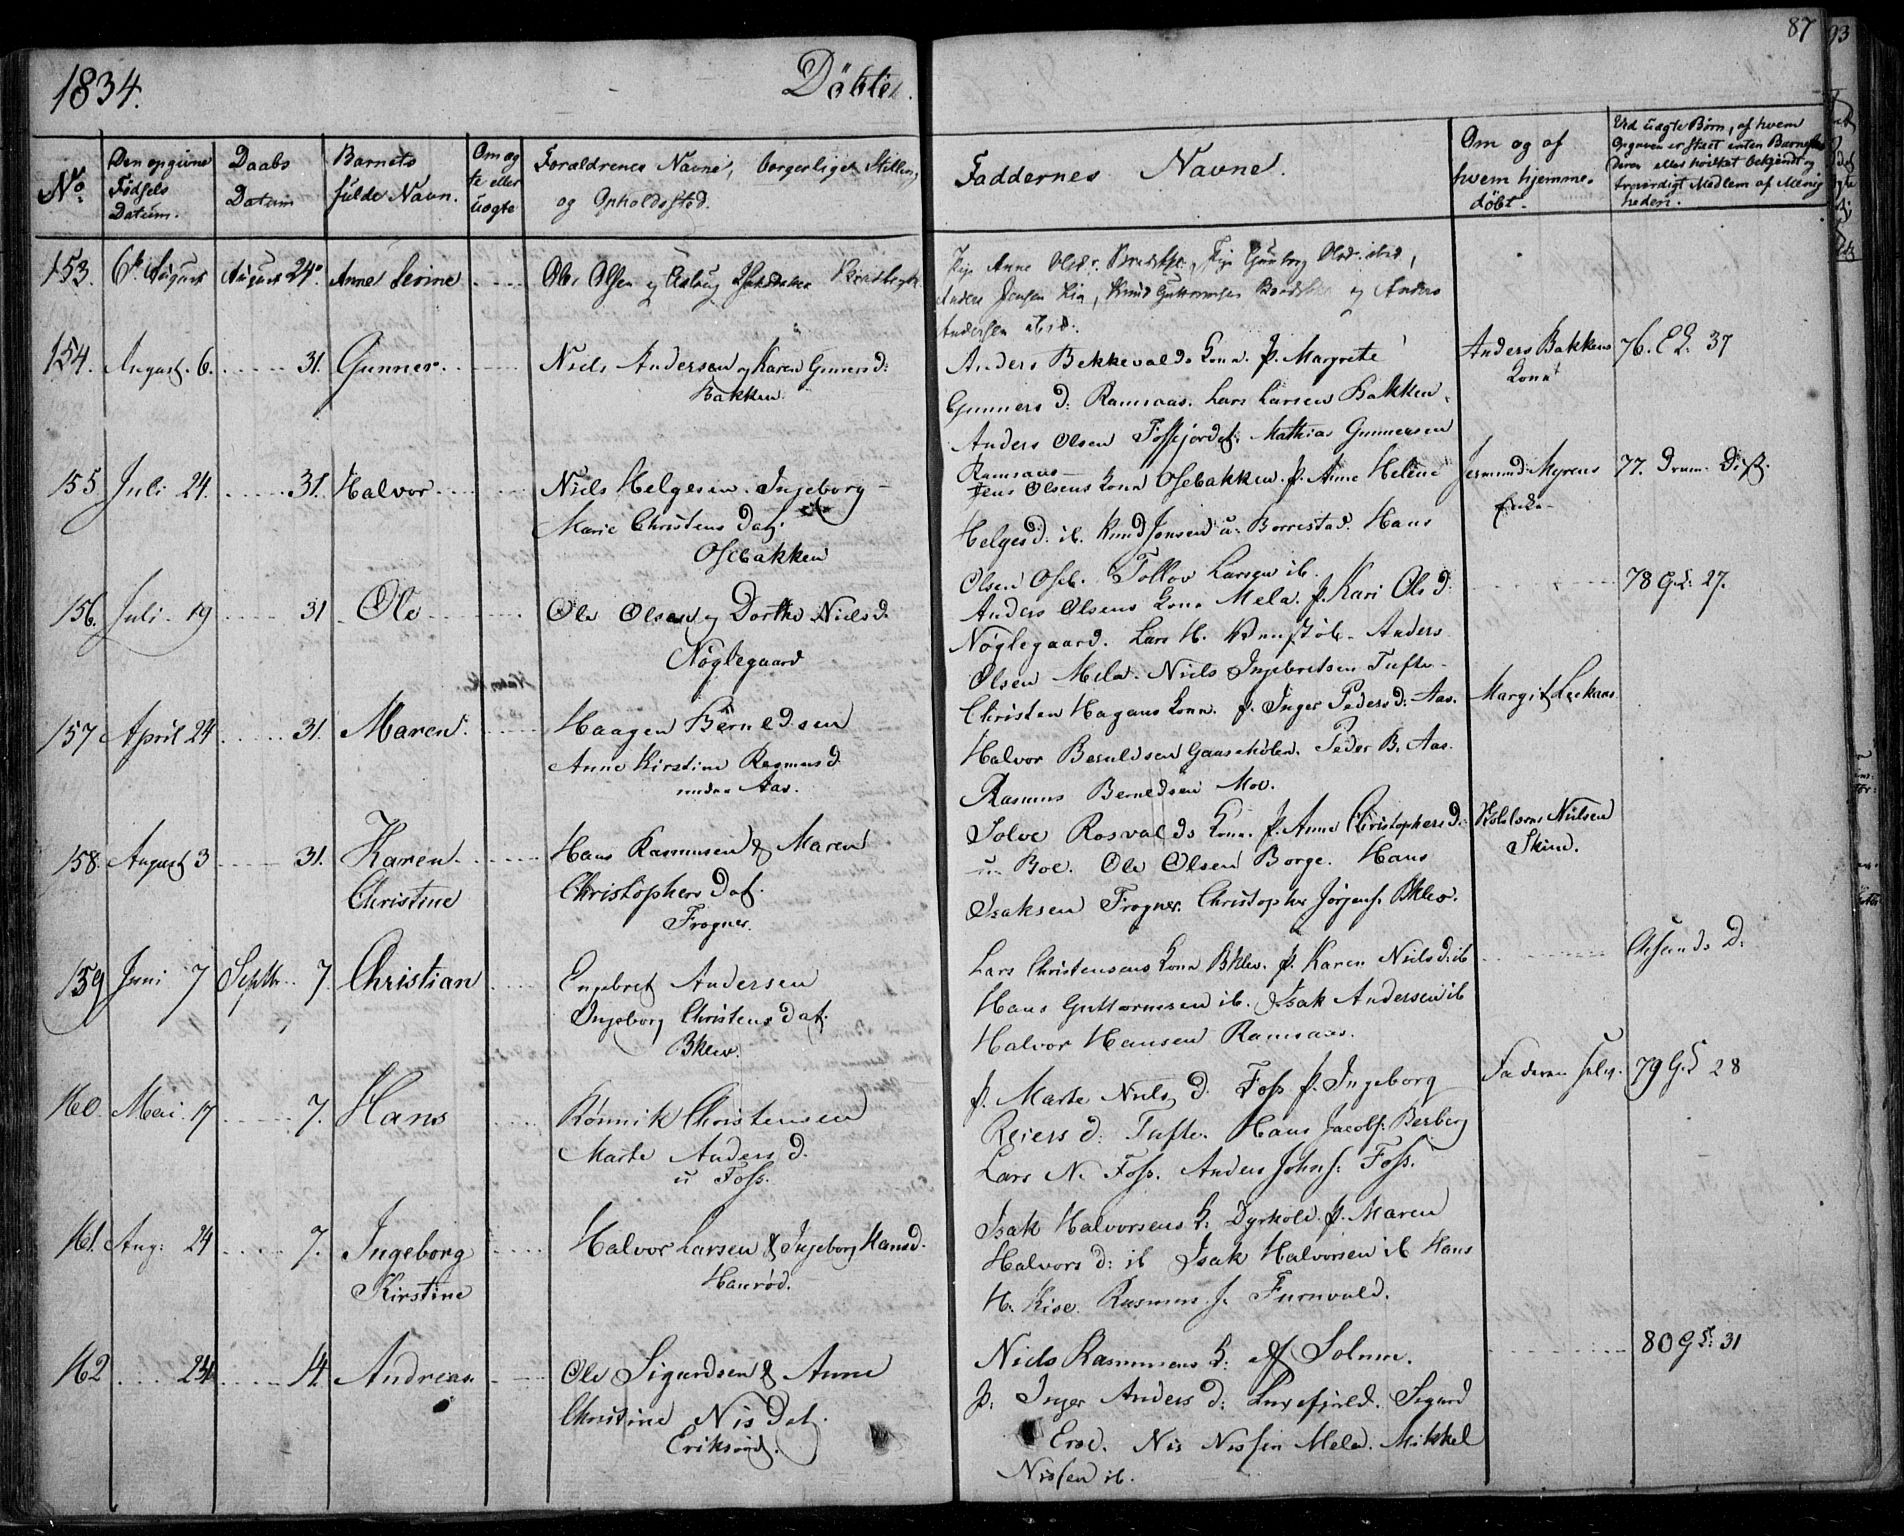 87
93
1834.
Döbte.
No.
Den opgivne
Födsels
Datum.
Daabs
Datum
Barnets
fulde Navn.
Om æg
te eller
uægte
Forældrenes Navne, borgerlige Stilling
og Opholdssted.
Faddernes Navne.
Om og af
hvem hjemme-
døbt.
Ved uægte Børn, af hvem
Opgaven er skeet enten Barnefa
deren eller hvilket bekjendt og
troværdigt Medlem af Menig
heden.
153. 6te August August 24. Anne Serine Ole Olsen og
Pige Anne Olsdr. Pige Gunbor Olsd. ibid,
Anders Jensen Lia, Knud Guttormsen og Anders
Andersen ibid.
154. August. 6. 31. Gunner. Niels Andersen og Karen Gunnersd:
Bakken.
Anders Bekkevalds Kona. P. Margrete
Gunners d: Ramsaas. Lars Larsen Bakken.
Anders Olsen Fossejordet. Mathias Gunnersen
Ramsaas
Anders Bakkens
Kona
76. 37
155 Juli 24. 31. Halvor Niels Helgesen. Ingeborg
Marie Christens Dat.
Osebakken
Jens Olsens Kona Osebakken. P. Anne Helene
Helgesd: ib. Knud Jonsen u. Borrestad. Hans
Olsen Oseb. Tollov Larsen ib.
Myrens
Enke
77. Dram. Dist.
156. Juli 19 31 Ole Ole Olsen og Dorthe Nielsd.
Nøglegaard
Anders Olsens Kona Mela. P. Kari Olsd.
Nøglegaard. Lars H. Anders
Olsen Mela. Niels Ingebretsen Tufte
78 G.S. 27.
157 April 24 31. Maren Haagen Berneldsen
Anne Kirstine Rasmusd.
under Aas.
Christen Hagans Kona. P. Inger Peders d: Aas.
Halvor Berneldsen Gaaseholen. Peder B. Aas.
Rasmus Berneldsen Moe.
Margit
158. August 3 31. Karen
Christine
Hans Rasmusen & Maren
Christophers Dat.
Frogner.
Solve Rosvalds Kona. P. Anne Christophersd:
u. Boe. Ole Olsen Borge. Hans
Isaksen Frogner. Christopher Jörgens. Bklev.
Nielsen
Skien.
159 Juni 7 Septb. 7. Christian Engebret Andersen
Ingeborg Christens Dat.
Bklev.
Lars Christensens Kona Bklev. P. Karen Nielsd: ib
Hans Guttormsen ib. Isak Andersen ib
Halvor Hansen Ramsaas.
160. Mai 17 7. Hans Rønnik Christensen
Marte Anders d.
u Foss.
P. Marte Niels d. Foss P. Ingeborg
Reiers d: Tufte. Hans Jacobs. Berberg
Lars N. Foss. Anders Johns. Foss.
Faderen selv.
79 G.S 28
161. Aug: 24 7. Ingeborg
Kirstine
Halvor Larsen & Ingeborg Hansd.
Hanrød.
Isak Halvorsens K: Dyrkold. P. Maren
Halvors d: ib Isak Halvorsen ib Hans
H. Kise. Rasmus J. Furuvald.
162 24 14. Andreas Ole Sigurdsen & Anne
Christine Nis Dat.
Eriksrød.
Niels Rasmusens K: af Solum.
P. Inger Anders d: Luxefjeld. Sigurd
Erød. Nis Nissen Mela. Mikkel
Nissen ib.
80 G.S. 31